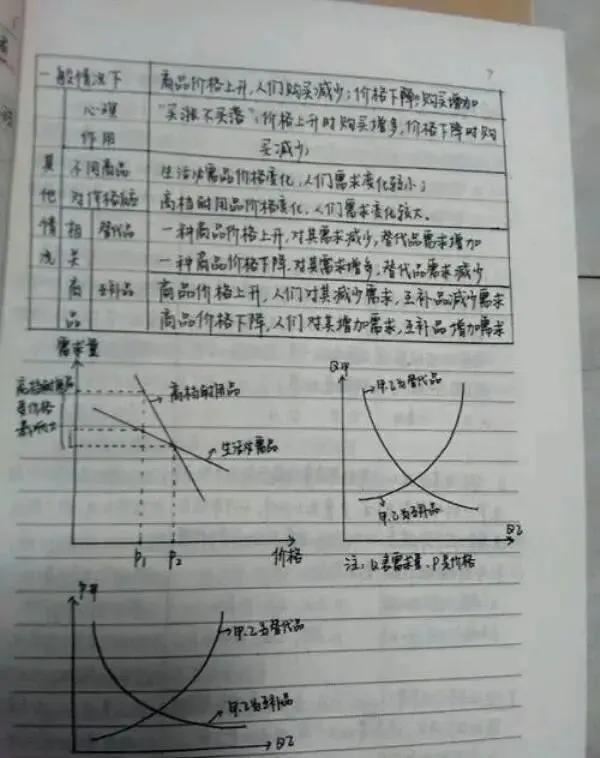 一般情况下 商品价格上升,人们购买减少;价格下降,购买增加
心理 "买涨不买落":价格上升时购买增多,价格下降时购
作用 买减少;
其 不同商品 生活必需品价格变化,人们需求变化较小;
他 对价格反应 高档耐用品价格变化,人们需求变化较大。
情 相 替代品 一种商品价格上升,对其需求减少,替代品需求增加
况 关 一种商品价格下降,对其需求增多,替代品需求减少
商 互补品 商品价格上升,人们对其减少需求,互补品减少需求
品 商品价格下降,人们对其增加需求,互补品增加需求
需求量
高档耐用品
受价格
影响大
高档耐用品
生活必需品
P1 P2 价格
Q甲
甲.乙为替代品
甲.乙为互补品
Q乙
注:Q是需求量、P是价格
P甲
甲.乙为替代品
甲.乙为互补品
Q乙